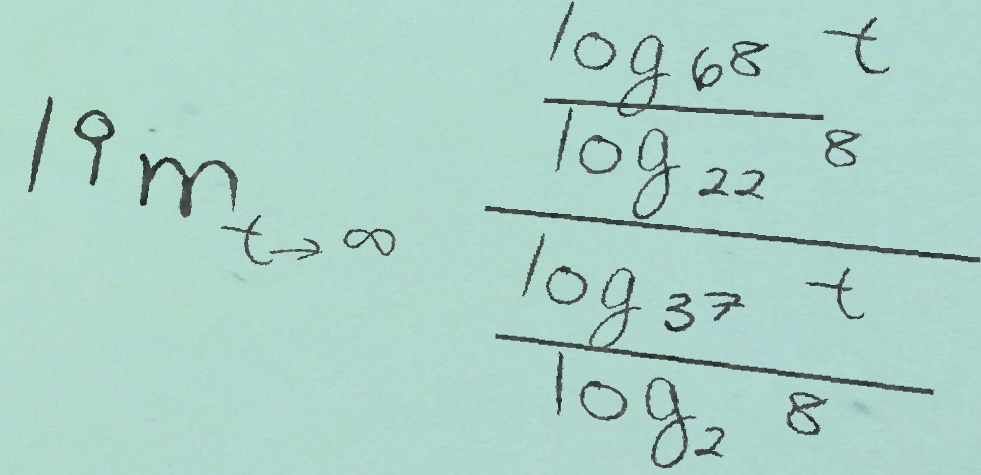 lim t→∞
log 68 t
log 22 8
log 37 t
log 2 8